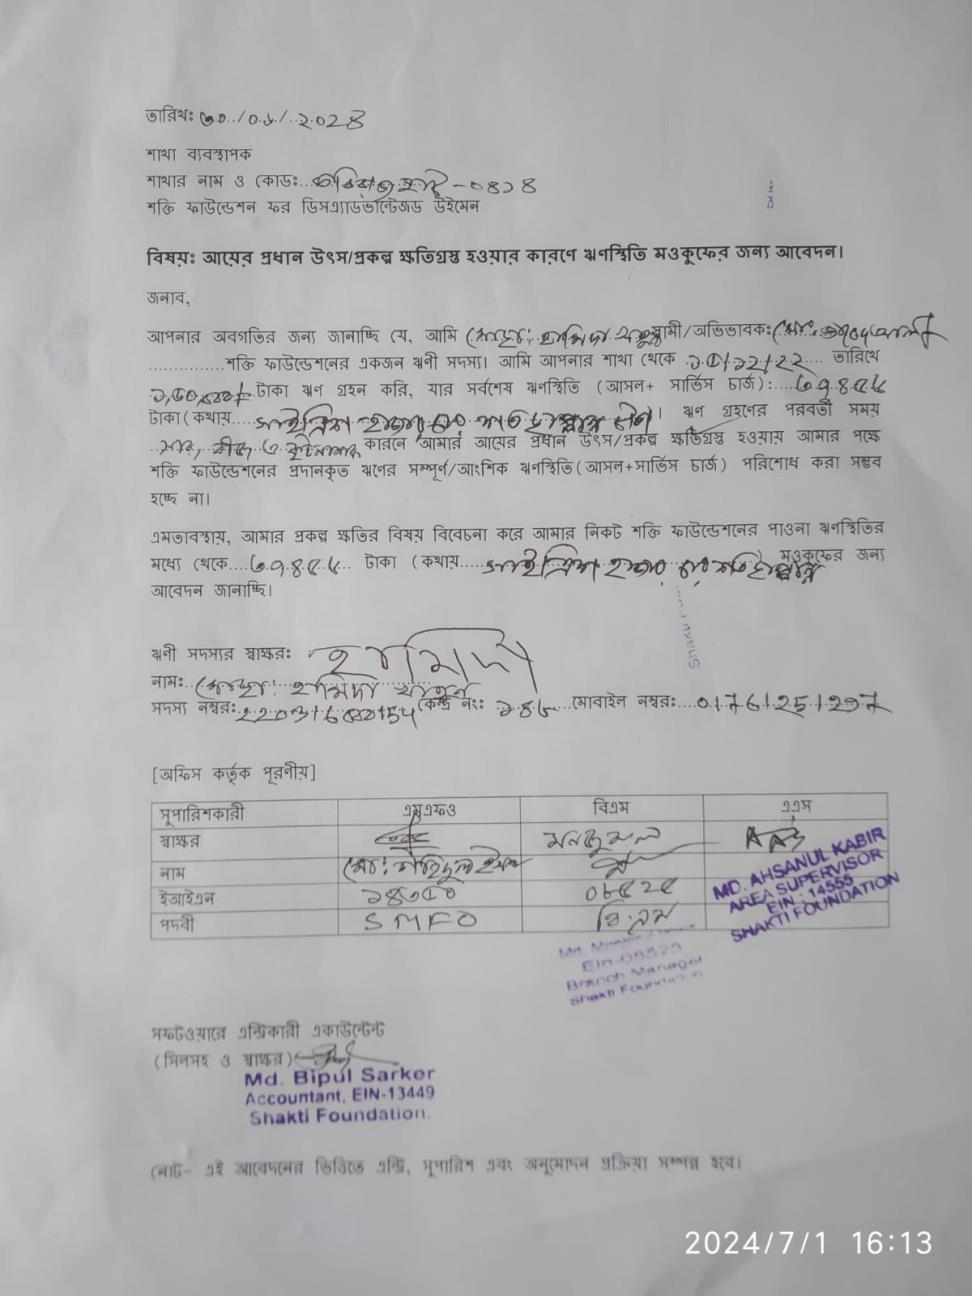 তারিখঃ ৩০/০৬/২০২৪
শাখা ব্যবস্থাপক
শাখার নাম ও কোডঃ... -০৪১৪
শক্তি ফাউন্ডেশন ফর ডিসএ্যাডভান্টেজড উইমেন
বিষয়ঃ আয়ের প্রধান উৎস/প্রকল্প ক্ষতিগ্রস্ত হওয়ার কারণে ঋণস্থিতি মওকুফের জন্য আবেদন।
জনাব,
আপনার অবগতির জন্য জানাচ্ছি যে, আমি মোছা: হামিদা খাতুন স্বামী/অভিভাবক: মো:
শক্তি ফাউন্ডেশনের একজন ঋণী সদস্য। আমি আপনার শাখা থেকে ১৫/১২/২২ তারিখে
টাকা ঋণ গ্রহন করি, যার সর্বশেষ ঋণস্থিতি (আসল+ সার্ভিস চার্জ):... ৩৭৪৫৬
টাকা(কথায় সাইত্রিশ হাজার চার শত ছাপ্পান্ন)। ঋণ গ্রহণের পরবর্তী সময়
সার, বীজ ও কীটনাশক কারনে আমার আয়ের প্রধান উৎস/প্রকল্প ক্ষতিগ্রস্ত হওয়ায় আমার পক্ষে
শক্তি ফাউন্ডেশনের প্রদানকৃত ঋণের সম্পূর্ণ/আংশিক ঋণস্থিতি(আসল+সার্ভিস চার্জ) পরিশোধ করা সম্ভব
হচ্ছে না।
এমতাবস্থায়, আমার প্রকল্প ক্ষতির বিষয় বিবেচনা করে আমার নিকট শক্তি ফাউন্ডেশনের পাওনা ঋণস্থিতির
মধ্যে থেকে....৩৭৪৫৬.. টাকা (কথায়....সাইত্রিশ হাজার চার শত ছাপ্পান্ন মওকুফের জন্য
আবেদন জানাচ্ছি।
ঋণী সদস্যর স্বাক্ষরঃ হামিদা
নামঃ মোছা: হামিদা খাতুন
সদস্য নম্বরঃ কেন্দ্র নং: ১৪৬...মোবাইল নম্বরঃ....01761251297
[অফিস কর্তৃক পূরণীয়]
সুপারিশকারী এমএফও বিএম এএস
স্বাক্ষর মনজুরুল
নাম মো: শহিদুল ইসলাম
ইআইএন ০৮৫২৫
পদবী SMFO বি.এম
MD. AHSANUL KABIR
AREA SUPERVISOR
EIN : 14555
SHAKTI FOUNDATION
Branch Manager
Shakti Foundation
সফটওয়ারে এন্ট্রিকারী একাউন্টেন্ট
(সিলসহ ও স্বাক্ষর)
Md. Bipul Sarker
Accountant, EIN-13449
Shakti Foundation.
নোট- এই আবেদনের ভিত্তিতে এন্ট্রি, সুপারিশ এবং অনুমোদন প্রক্রিয়া সম্পন্ন হবে।
2024/7/1 16:13